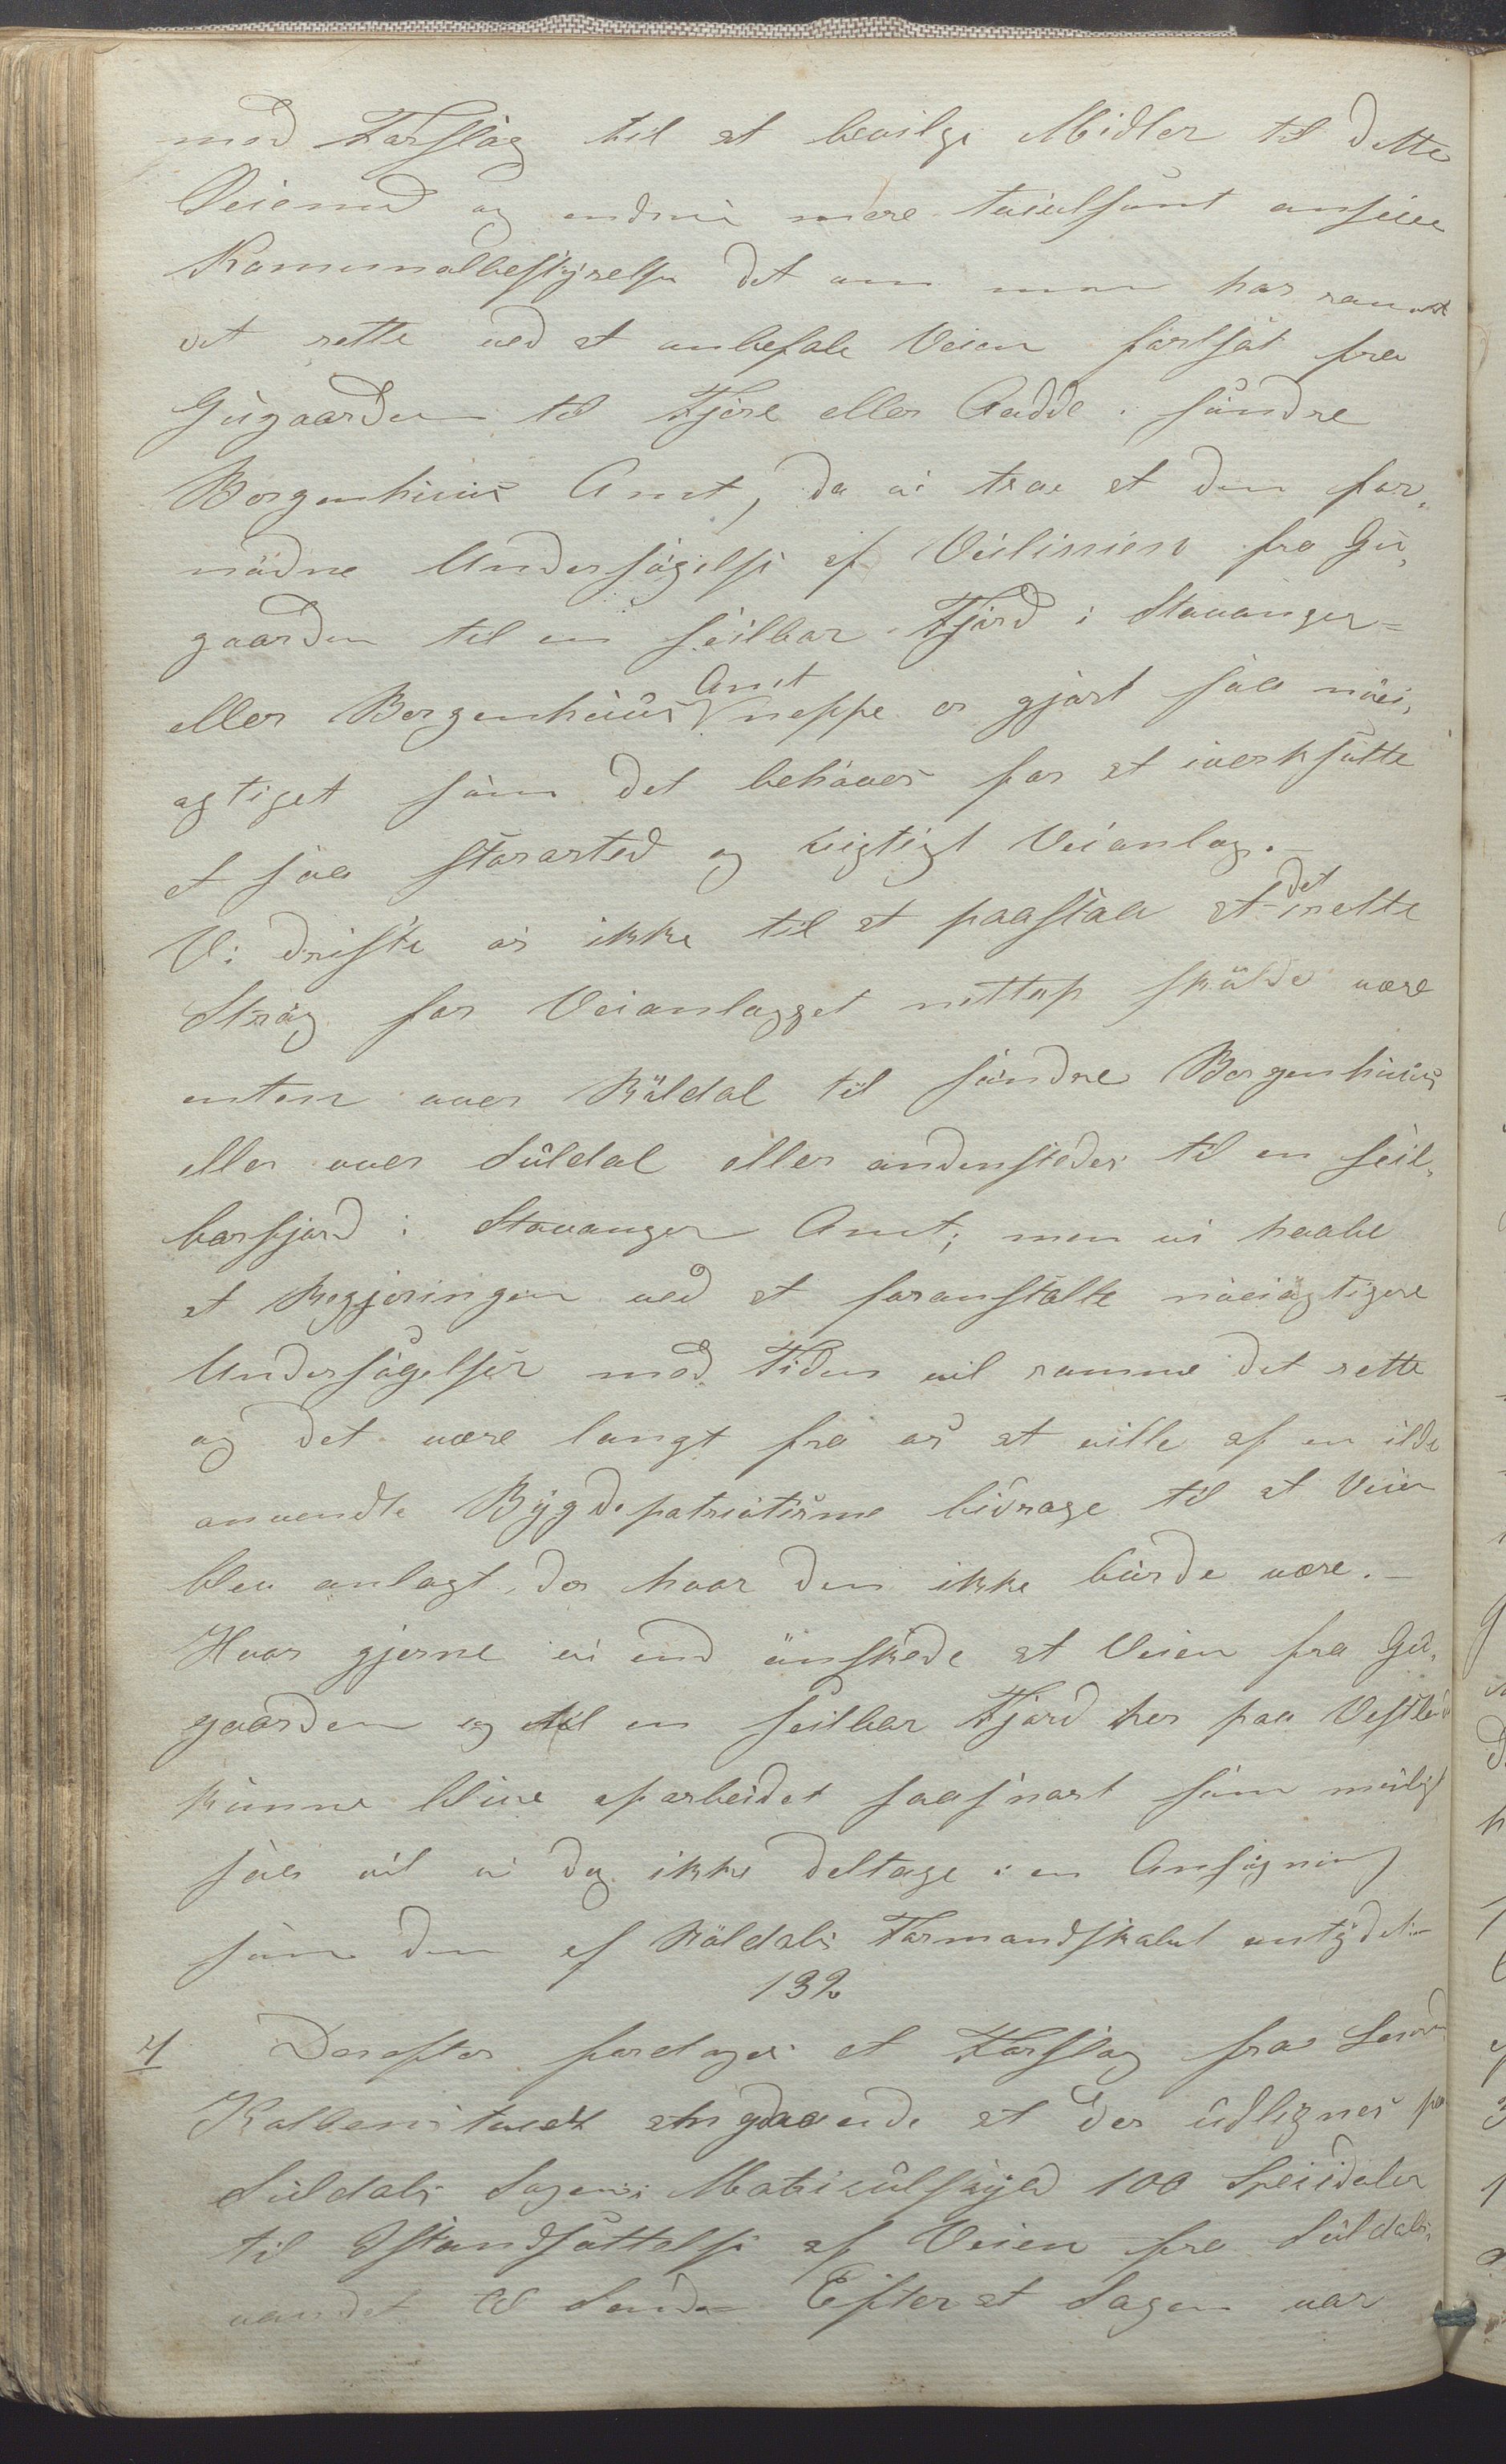 med Forslag til at bevilge Midler til dette
Veiemed og endnu mere tvivlsomt anseer
Kommunalbestyrelse det om man har rammet
det rette ved at anbefale Veien fortsat fra
Gugaarden til Fjære eller Aadde i søndre
Bergenhuus Amt, da vi troe at den for-
nødne Undersøgelse af Veilinien fra Gu-
gaarden til en seilbar Fjord i Stavanger-
eller Bergenhuus Amt neppe er gjort saa nøi-
agtiget som det behøves for at iverksætte
et saa storarted og vigtigt Veianlæg.-
Vi driste os ikke til at paastaa at det rette
Strøg for Veianlægget nettop skulde være
enten over Røldal til søndre Bergenhuus
eller over Suldal eller andensteder til en seil-
barfjord i Stavanger Amt; men vi haabe
at Regjeringen ved at foranstalte nøiagtigere
Undersøgelser med Tiden vil ramme det rette
og det være langt fra os at ville af en ilde
anvendte Bygdepatriotisme bidrage til at Veien
blev anlagt der hvor den ikke burde være.-
Hvor gjerne vi end ønskede at Veien fra Gu-
gaarden og til en seilbar Fjord her paa Vestled
kunne blive oparbeidet saasnart som muligt
saa vil vi dog ikke deltage i en Ansøgning
som den af Røldals Formandskabet antydet.-
132
4 Derefter fordages et Forslag fra
angaaende at der udlignes paa
Suldals Sogens Matrikulskyld 100 Speciedaler
til Istandsættelse af Veien fra Suldals-
vandet til Sand. Efter at Sagen var